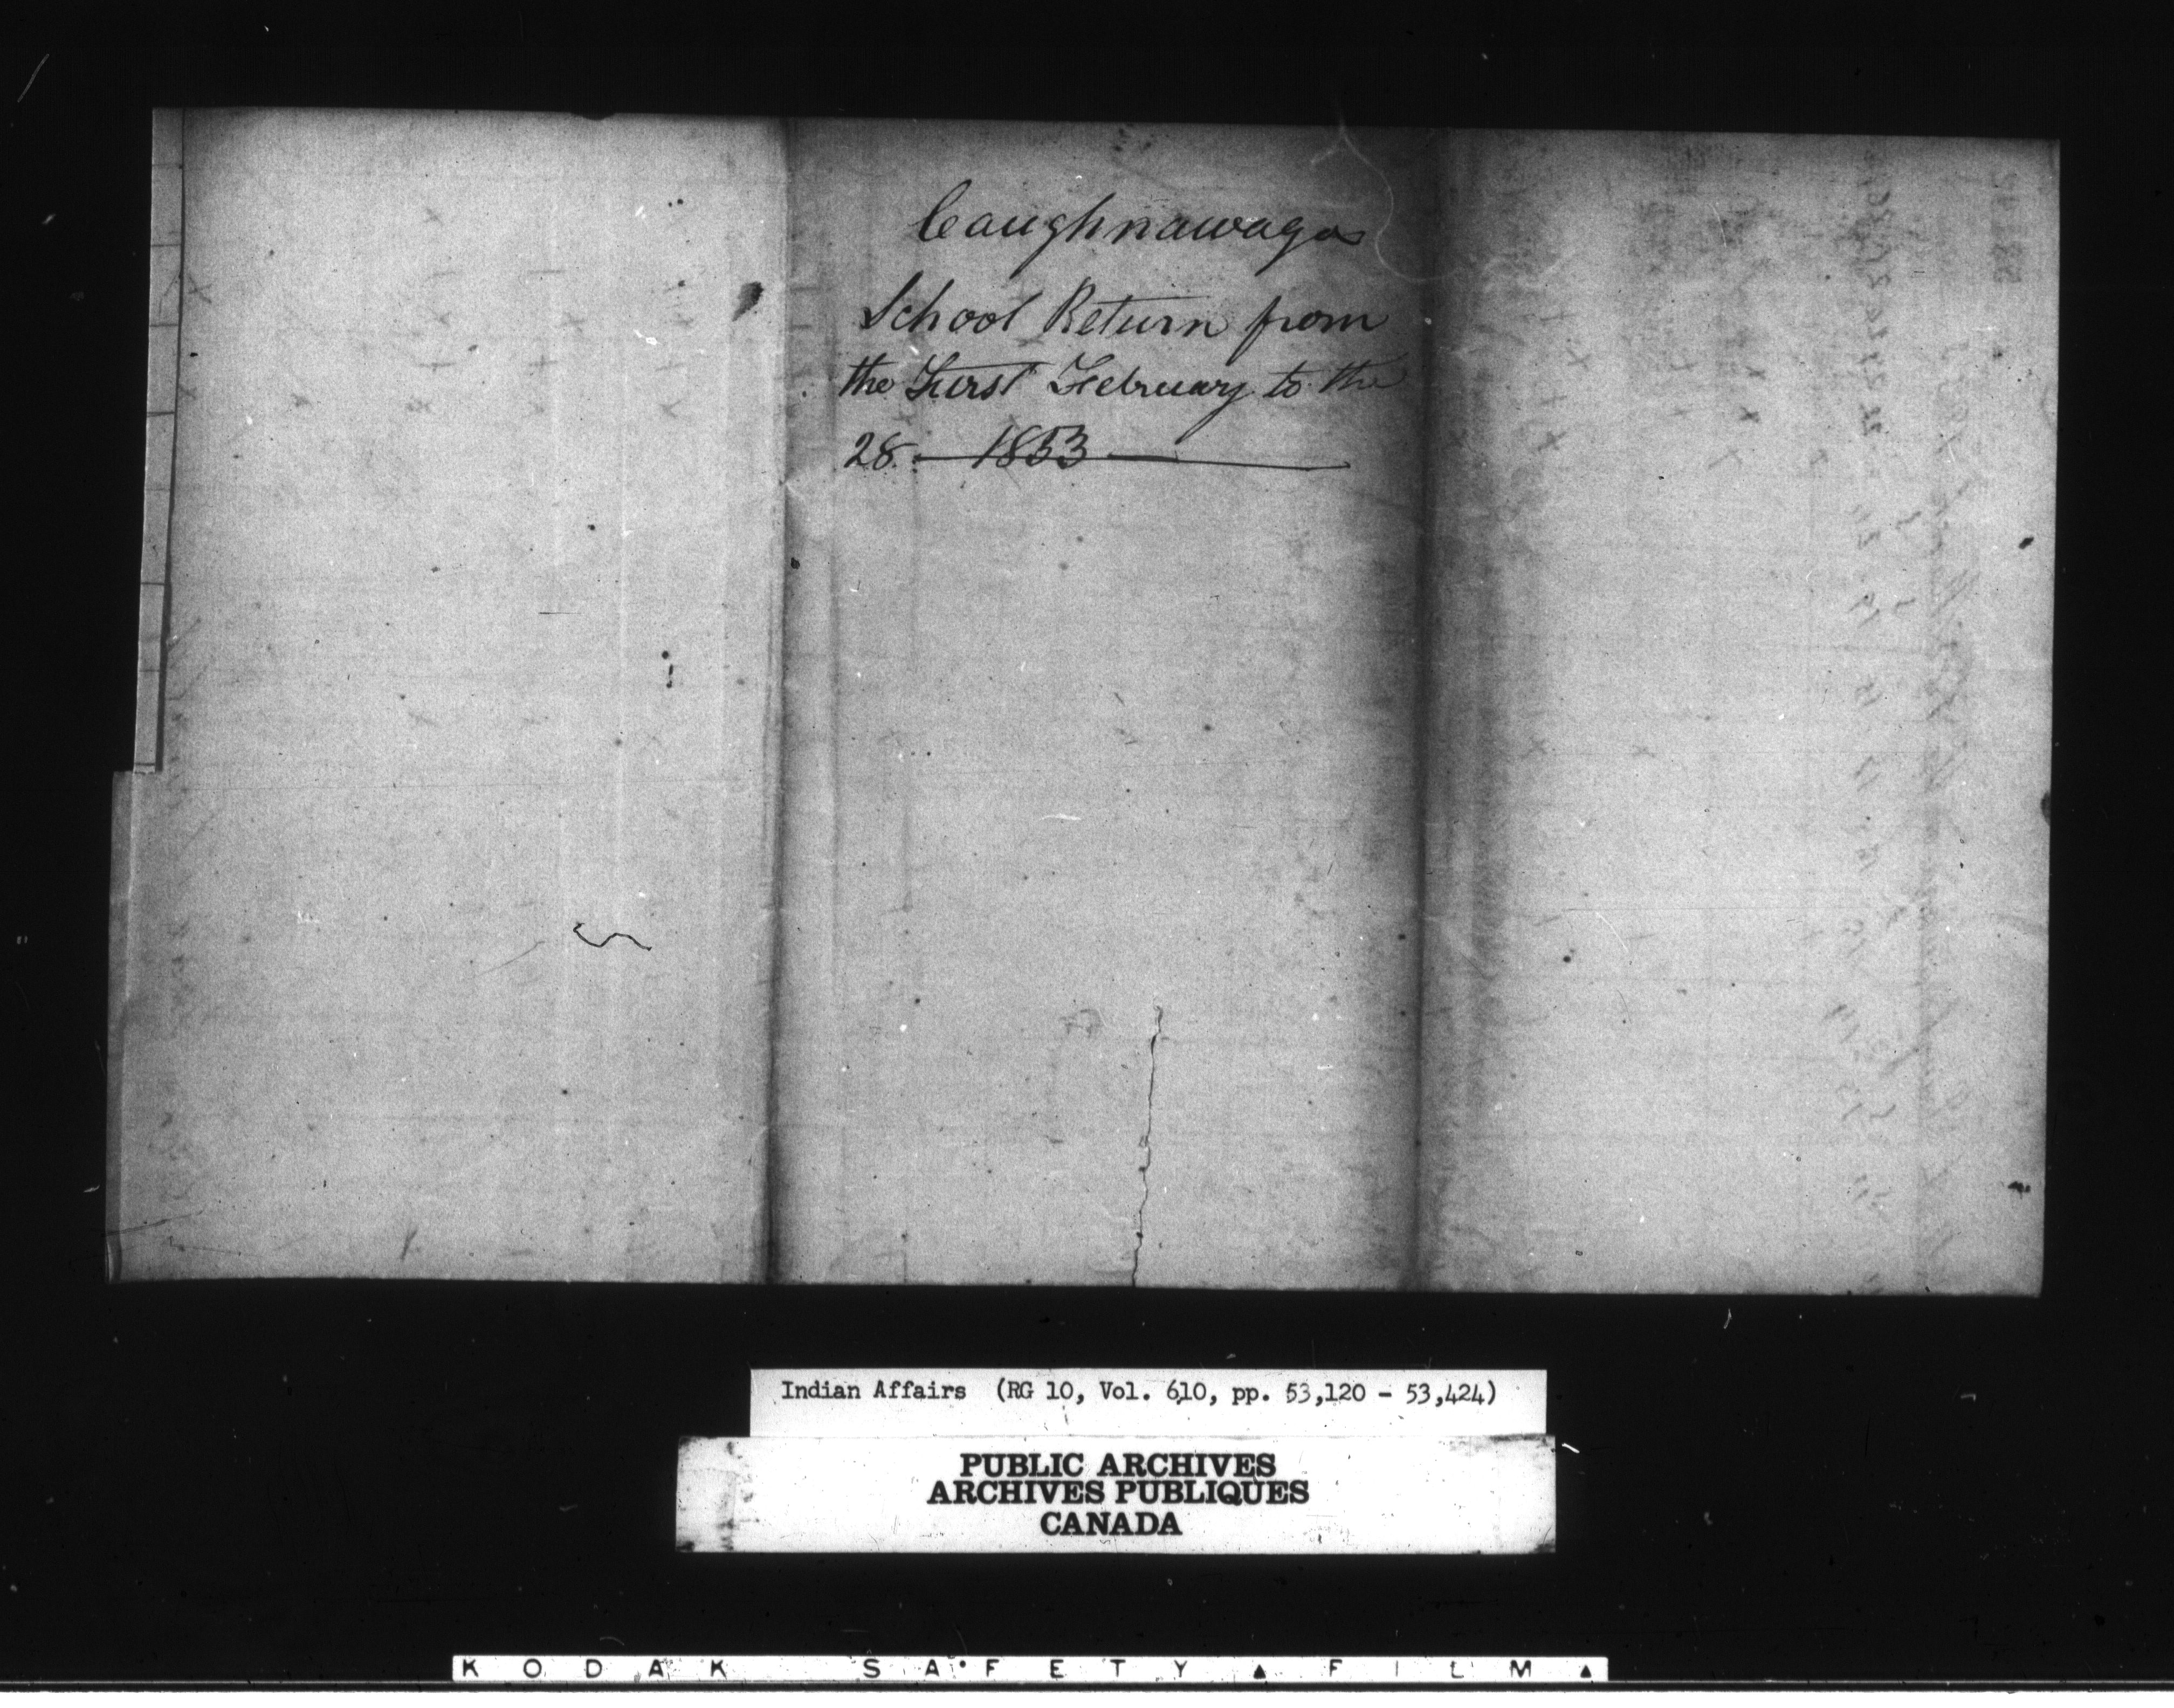 Caughnawaga
School Return from
the First February to the
28. — 1853 —
Indian Affairs (RG 10, Vol. 610, pp. 53,120 - 53,424)
PUBLIC ARCHIVES
ARCHIVES PUBLIQUES
CANADA
KODAK SAFETY ▲ FILM ▲